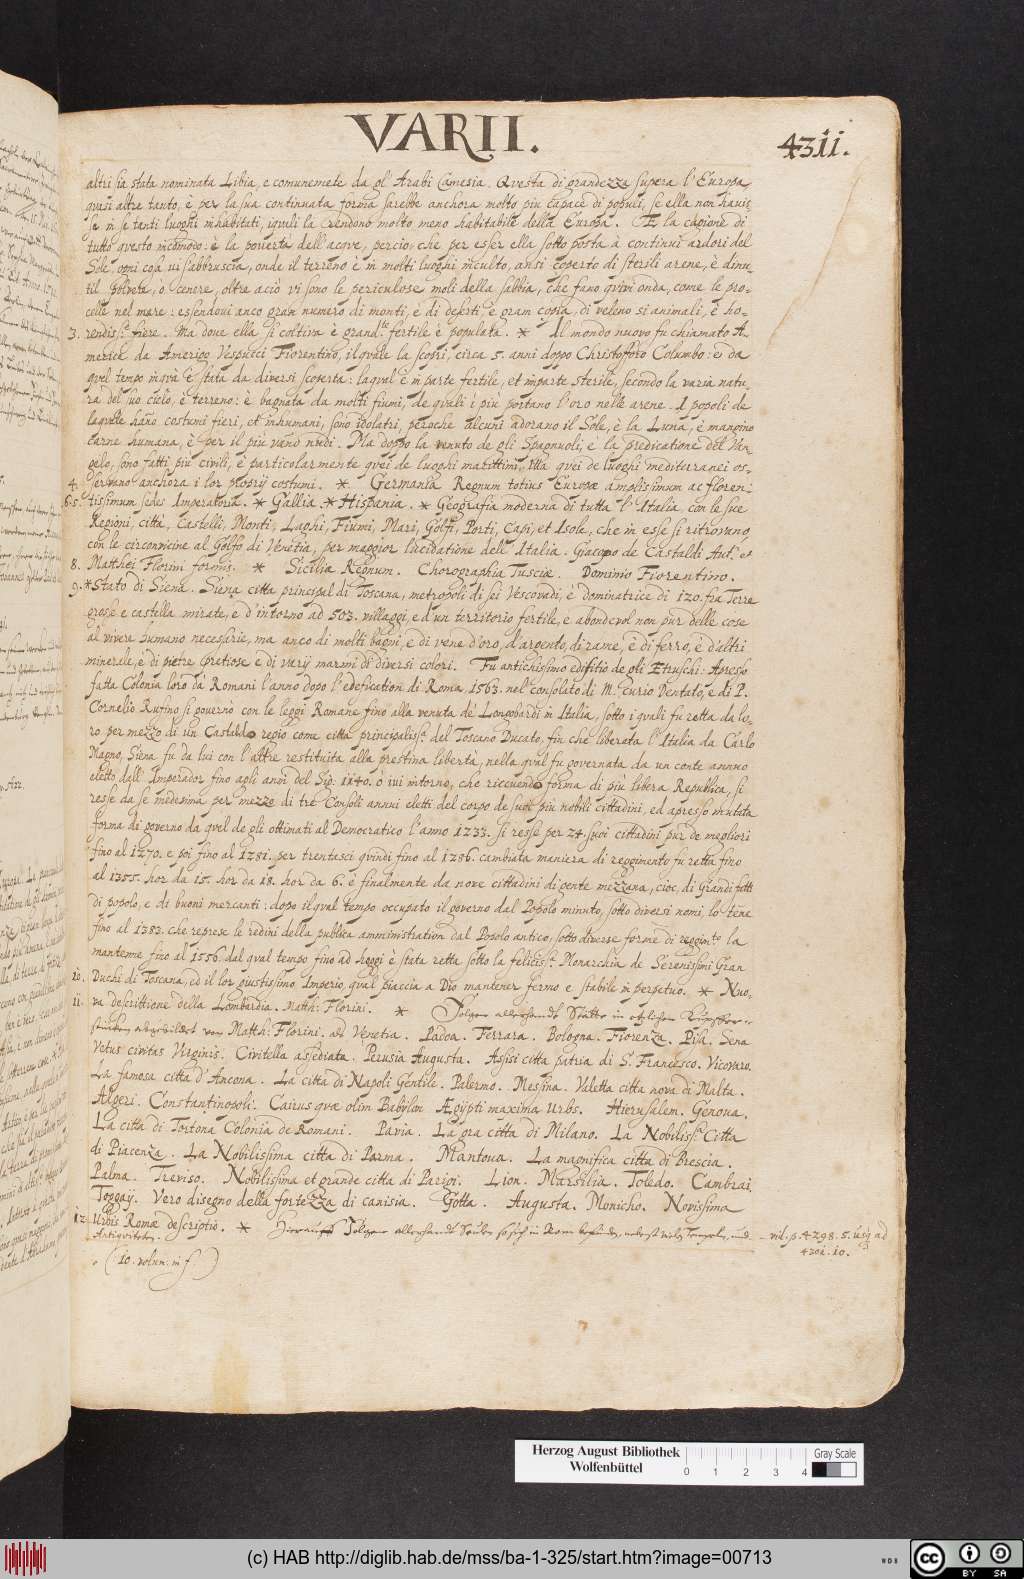 VARII.
4311.
altri sia stata nominata Libia, e comunemẽte da gl' Arabi Camesia. Qvesta di grandezza supera l' Europa
qvasi altre tanto, è per la sua continuata forma sarebbe anchora molto più capace di populi, se ella non havis
se in se tanti luoghi inhabitati, iqvali la rendono molto meno habitabile della Europa. E la cagione di
tutto qvesto incōmodo: è la povertà dell' acqve, percio, che per esser ella sotto posta à continui ardori del
Sole, ogni cosa ui s'abbruscia, onde il terreno è in molti luoghi inculto, ansi coperto di sterili arene, è di mi
til polvere, ò cenere, oltre aciò vi sono le periculose moli della sabbia, che fano qvivi onda, come le pro-
celle nel mare: essendoui anco gran numero di monti, è di deserti, è gram copia, di veleno si animali, è ho-
3. rendiss.e fiere. Ma dove ella si coltiva è grand.te fertile è populata. * Il mondo nuovo fu chiamato A-
merice da Amerigo Vespucci Fiorentino, il qvale la scoprì, circa 5. anni doppo Christofforo Columbo: è da
qvel tempo in qvà è stata da diversi scoperta: laqval è in parte fertile, et in parte sterile, secondo la varia natu
ra del suo cielo, è terreno: è bagnata da molti fiumi, de qvali i più portano l'oro nelle arene. I popoli de
laqvale hãno costumi fieri, et inhumani, sono idolatri, peroche alcuni adorano il Sole, è la Luna, è mangino
carne humana, è per il più vanō nudi. Ma doppo la venuto de gli Spagnuoli, è la predicatione del Van-
gelo, sono fatti più civili, è particolarmente qvei de luoghi marittimi, Ma qvei de luoghi mediterranei os-
4. servano anchora i lor proprÿ costumi. * Germania Regnum totius Europæ amplissimum ac floren-
6. 5. tissimum sedes Imperatoria. * Gallia * Hispania. * Geografia moderna di tutta l' Italia con le sue
Regioni, città, Castelli, Monti, Laghi, Fiumi, Mari, Golfi, Porti, Capi, et Isola, che in essa si ritrovano,
con le circonvicine al Golfo di Venetia, per maggior lucidatione dell' Italia. Giacopo de Castaldi Aut.e
8. Matthei Florini formis. * Siciliæ Regnum. Chorographia Tusciæ. Dominio Fiorentino.
9. * Stato di Siena. Siena citta principal di Toscana, metropoli di sei Vescovadi, è dominatrice di 120. fra Terre
grosse e castella mirate, e d'intorno ad 503. villaggi, e d'un territorio fertile, e abondevol non pur delle cose
al' vivere humano necessarie, ma anco di molti bagni, e di vene d'oro, d'argento, di rame, è di ferro, è d'altri
minerale, è di pietre pratiose è di varÿ marmi di diversi colori. Fu antichissimo edifitio de gli Etruschi: Apresso
fatta Colonia loro dà Romani l'anno dopo l'edeficatiõn di Roma. 1563. nel consolato di M. Curio Dentato, e di P.
Cornelio Rufino si governò con le leggi Romane fino alla venuta de' Longobardi in Italia, sotto i qvali fu retta da lo-
ro per mezzo di un Castaldo regio come citta principaliss.a del Toscano Ducato, fin che liberata l' Italia da Carlo
Magno, Siena fu da lui con l'altre restituita alla prestina liberta, nella qval fu governata da un conte annuo
eletto dall' Imperador fino agli anni del Sig. 1140. ò ivi intorno, che ricevendo forma di più libera Republica, si
resse da se medesima per mezzo di tre Consoli annui eletti del corpo de suoi più nobili cittadini, ed apresso mutata
forma di governo da qvel de gli ottimati al Democratico l'anno 1233. si resse per 24. suoi cittadini pur de megliori
fino al 1270. e poi fino al 1281. per trentasei qvindi fino al 1286. cambiata maniera di reggimento fu retta fino
al 1355. hor da 15. hor da 18. hor da 6. è finalmente da nove cittadini di gente mezzana, cioè, di Grandi fatti
di popolo, e di buoni mercanti: dopo il qval tempo occupato il governo dal Popolo minuto, sotto diversi nomi, lo tēne
fino al 1383. che represe le redini della publica amministration dal Popolo antico, sotto diverse forme di reggim.to la
mantenne fino al 1556. dal qval tempo fino ad hoggi è stata retta sotto la feliciss.a Monarchia de Serenissimi Gran
10. Duchi di Toscana, ed il lor giustissimo Imperio, qval piaccia a Dio mantener fermo e stabile in perpetuo. * Nuo-
11. va descrittione della Lombardia. Matth: Florini. * Folgen allerhandt Stätte in etzlichen Kupffer-
stucken abgebildet von Matth: Florini. als Venetia. Padoa. Ferrara. Bologna. Fiorenza. Pisa. Sena
Vetus civitas Virginis. Civitella assediata. Perusia Augusta. Assisi citta patria di S. Francesco. Vicovaro.
La famosa citta d'Ancona. La citta di Napoli Gentile. Palermo. Messina. Valetta citta nova di Malta.
Algeri. Constantinopoli. Cairus qvæ olim Babylon Ægÿpti maxima Urbs. Hierusalem. Genova.
La citta di Tortona Colonia de Romani. Pavia. La gra citta di Milano. La Nobiliss.a Citta
di Piacenza. La Nobilissima citta di Parma. Mantova. La magnifica citta di Brescia.
Palma. Treviso. Nobilissima et grande citta di Parigi. Lion. Marsilia. Toledo. Cambrai.
Tongay. Vero disegno della fortezza di canisia. Gotta. Augusta. Monicho. Novissima
12. Urbis Romæ descriptio. * Hierauff Folgen allerhandt Seulen so sich in Rom befinden, nebenst vielen Tempeln, und
Antiqviteten. - vid. p. 4298. 5. usq ad
4301. 10.
(10. volum. in f.)
Herzog August Bibliothek
Wolfenbüttel
0 1 2 3 4
Gray Scale
(c) HAB http://diglib.hab.de/mss/ba-1-325/start.htm?image=00713
cc BY SA